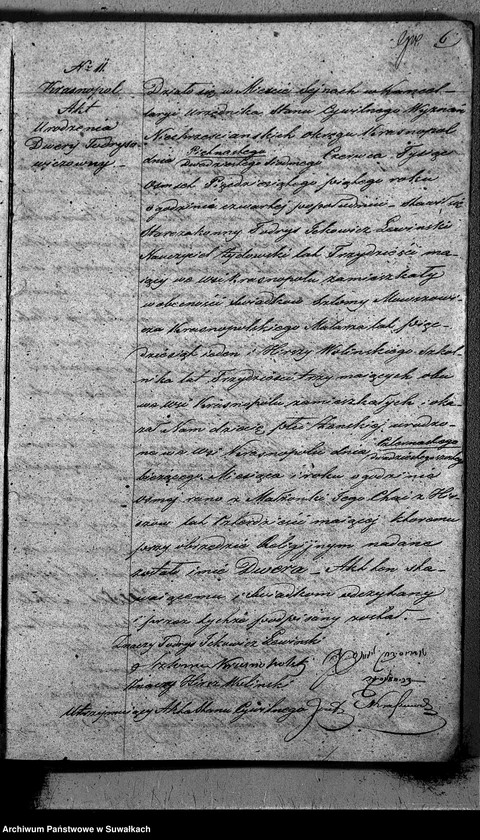 6
No 11.
Krasnopol
Akt
Urodzenia
Dwery Tudryso-
wiczowny
Działo się w Mieście Sejnach w Kancel-
laryi Urzędnika Stanu Cywilnego Wyznań
Niechrześciańskich okręgu Krasnopol
dnia Piętnastego
dwudziestego siódmego Czerwca Tysiąc
Osmset Pięćdziesiątego piątego roku
o godzinie czwartej popołudniu. Stawił się
Starozakonny Tudrys Ickowicz Lewinski
Nauczyciel żydowski lat Trzydzieści ma-
jący we wsi Krasnopolu zamieszkały
w obecności świadków Szlomy Mowszowi-
cza Krasnopolskiego Malarza lat pięć-
dziesiąt jeden i Hirszy Wolinskiego szkol-
nika lat Trzydzieści trzy mających obu
we wsi Krasnopolu zamieszkałych i oka-
zał Nam dziecię płci żeńskiej urodzo-
na we wsi Krasnopolu dnia
bieżącego Miesiąca i roku o godzinie
osmej rano z Małżonki Jego Chai z
lat Czterdzieści mającej któremu
przy obrzędzie Religijnym nadane
zostało imię Dwera. Akt ten sta-
wającemu i świadkom odczytany
i przez tychże podpisany został.
Znaczy Tudrys Ickowicz Lewinski
Szloma Krasnopolski
Znaczy Hirsz Wolinski
Utrzymujący Akta Stanu Cywilnego
Archiwum Państwowe w Suwałkach